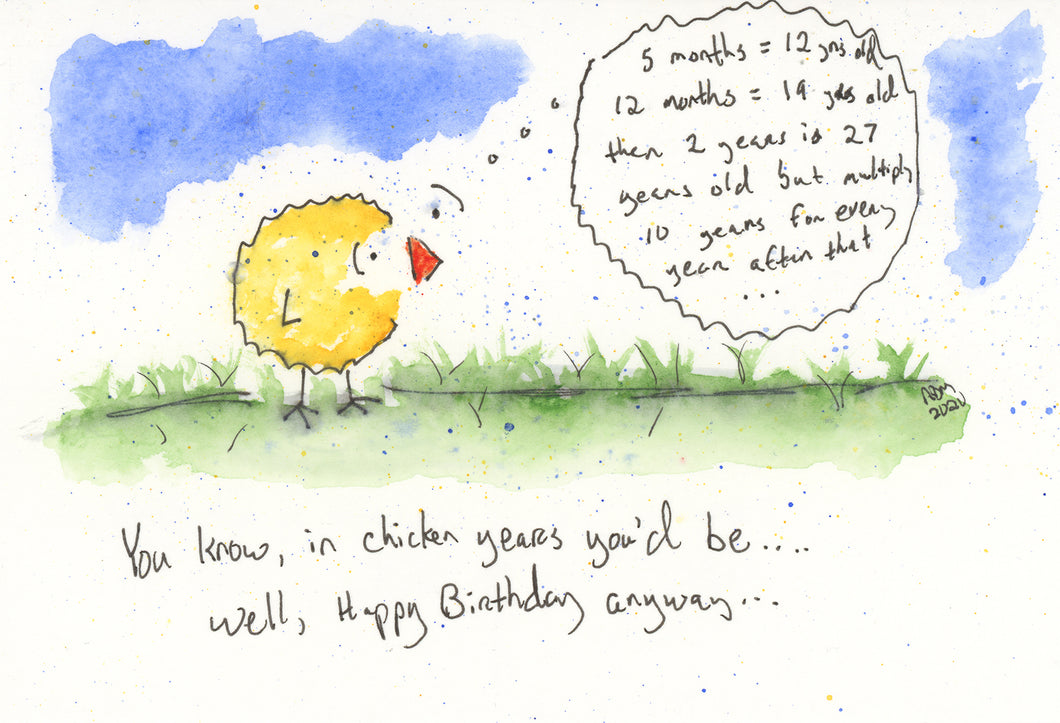 5 months = 12 yrs. old
12 months = 19 yrs old
then 2 years is 27
years old but multiply
10 years for every
year after that
...
2020
You know, in chicken years you'd be....
well, Happy Birthday anyway...